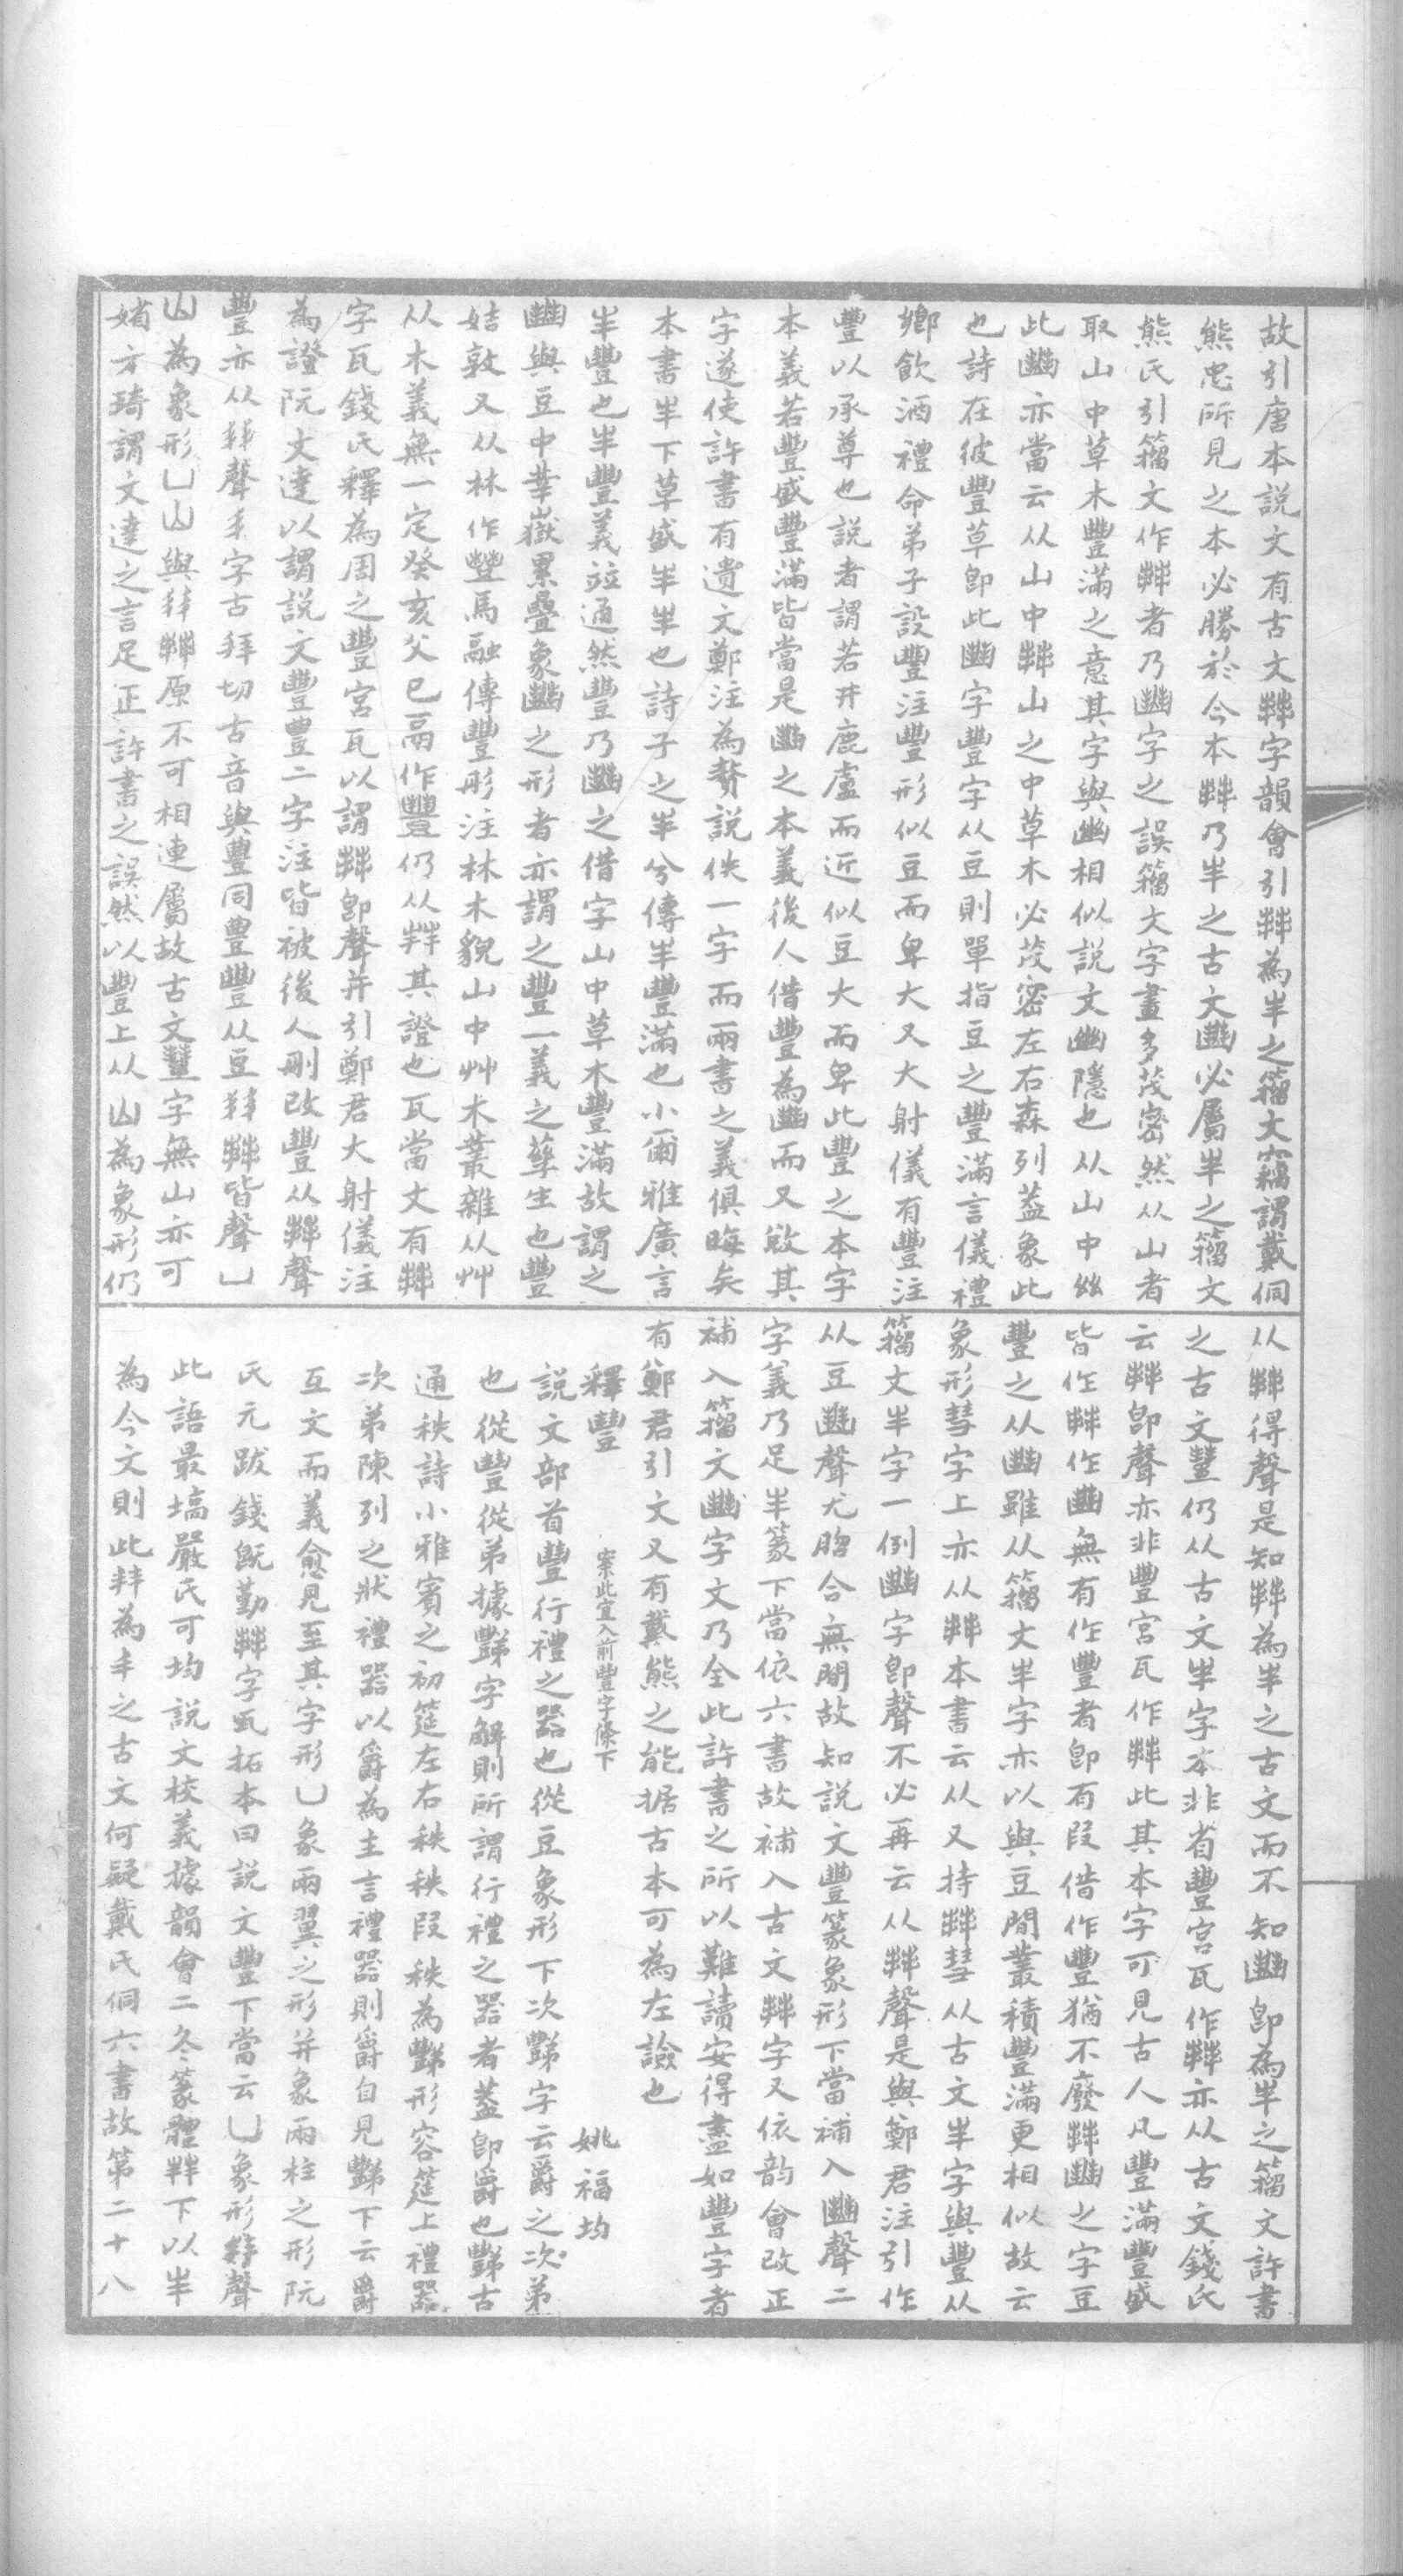 故引唐本説文有古文𠦒字韻會引𠦒為半之籀文竊謂戴侗
熊忠所見之本必勝於今本𠦒乃半之古文𧯮必屬半之籀文
熊氏引籀文作𠦒者乃字之誤籀文字畫多茂密然从山者
取山中草木豐滿之意其字與幽相似説文幽隱也从山中𢆶
此亦當云从山中𠦒山之中草木必茂密左右森列蓋象此
也詩在彼豐草即此字豐字从豆則單指豆之豐滿言儀禮
鄉飲酒禮命弟子設豐注豐形似豆而卑大又大射儀有豐注
豐以承尊也説者謂若井鹿盧而近似豆大而卑此豐之本字
本義若豐盛豐滿皆當是之本義後人借豐為而又敓其
字遂使許書有遺文鄭注為贅説佚一字而兩書之義俱晦矣
本書半下草盛半半也詩子之半兮傳半豐滿也小爾雅廣言
半豐也半豐義竝通然豐乃之借字山中草木豐滿故謂之
與豆中峯嶽累疊象之形者亦謂之豐一義之孳生也豐
姞敦又从林作豐馬融傳豐彤注林木貌山中艸木叢雜从艸
从木義無一定癸亥父己鬲作豐仍从𠦒其證也瓦當文有𠦒
字瓦錢氏釋為周之豐宮瓦以謂𠦒即聲并引鄭君大射儀注
為證阮文達以謂説文豐豊二字注皆被後人刪改豐从𠦒聲
豐亦从聲丰字古拜切古音與豊同豊豐从豆皆聲凵
𠙴為象形凵𠙴與原不可相連屬故古文豐字無山亦可
媘方琦謂文達之言足正許書之誤然以豐上从𠙴為象形仍
从𠦒得聲是知𠦒為半之古文而不知即為半之籀文許書
之古文豐仍从古文半字本非省豐宮瓦作𠦒亦从古文錢氏
云𠦒即聲亦非豐宮瓦作𠦒此其本字可見古人凡豐滿豐盛
皆作𠦒作無有作豐者即有叚借作豐猶不廢𠦒之字豆
豐之从雖从籀文半字亦以與豆間叢積豐滿更相似故云
象形彗字上亦从𠦒本書云从又持𠦒彗从古文半字與豐从
籀文半字一例字即聲不必再云从𠦒聲是與鄭君注引作
从豆聲尤脗合無間故知説文豐篆象形下當補入聲二
字義乃足半篆下當依六書故補入古文𠦒字又依韵會改正
補入籀文字文乃全此許書之所以難讀安得盡如豐字者
有鄭君引文又有戴熊之能据古本可為左譣也
釋豐 案此宜入前豐字條下 姚福均
説文部首豐行禮之器也從豆象形下次豑字云爵之次弟
也從豐從弟據豑字解則所謂行禮之器者蓋即爵也豑古
通秩詩小雅賓之初筵左右秩秩叚秩為豑形容筵上禮器
次弟陳列之狀禮器以爵為主言禮器則爵自見豑下云爵
互文而義愈見至其字形凵象兩翼之形并象兩柱之形阮
氏元跋錢旣勤𠦒字瓦拓本曰説文豐下當云凵象形聲
此語最塙嚴氏可均説文校義據韻會二冬篆體𠦒下以半
為今文則此𠦒為丰之古文何疑戴氏侗六書故第二十八